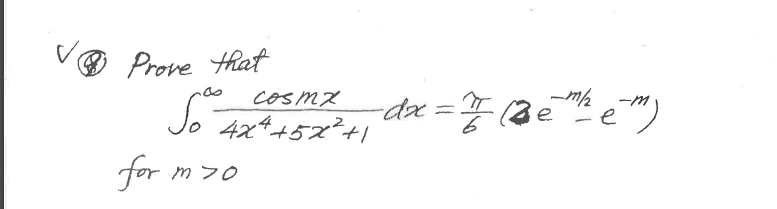 √ ⑧ Prove that
∫₀^∞ cos mx / (4x⁴+5x²+1) dx = π/6 (2e^(-m/2) - e^(-m))
for m >0